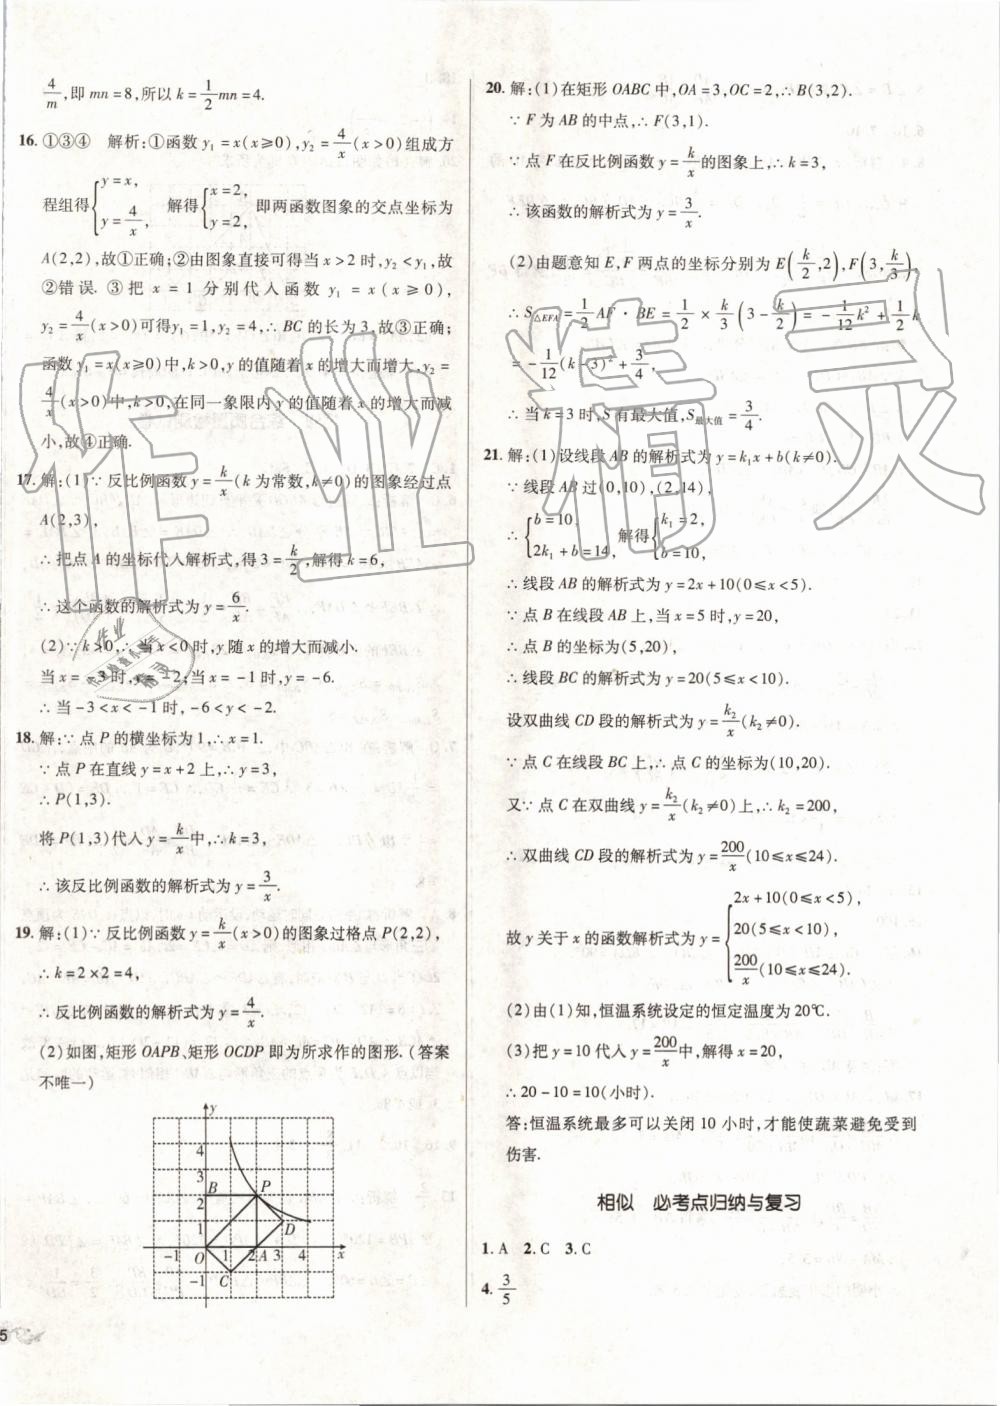 4/m,即 mn=8,所以 k=1/2mn=4.
16. ①③④ 解析:①函数 y₁=x(x≥0),y₂=4/x(x>0)组成方
程组得{y=x, y=4/x, 解得{x=2, y=2, 即两函数图象的交点坐标为
A(2,2),故①正确;②由图象直接可得当 x>2 时,y₂<y₁,故
②错误. ③把 x=1 分别代入函数 y₁=x(x≥0),
y₂=4/x(x>0)可得y₁=1,y₂=4,∴BC 的长为 3,故③正确;
函数 y₁=x(x≥0)中,k>0,y 的值随着 x 的增大而增大,y₂=
4/x(x>0)中,k>0,在同一象限内 y 的值随着 x 的增大而减
小,故④正确.
17. 解:(1)∵反比例函数 y=k/x(k 为常数,k≠0)的图象经过点
A(2,3),
∴把点 A 的坐标代入解析式,得 3=k/2,解得 k=6,
∴这个函数的解析式为 y=6/x.
(2)∵k>0,∴当 x<0 时,y 随 x 的增大而减小.
当 x=-3 时,y=-2;当 x=-1 时,y=-6.
∴当-3<x<-1 时,-6<y<-2.
18. 解:∵点 P 的横坐标为 1,∴x=1.
∵点 P 在直线 y=x+2 上,∴y=3,
∴P(1,3).
将 P(1,3)代入 y=k/x中,∴k=3,
∴该反比例函数的解析式为 y=3/x.
19. 解:(1)∵反比例函数 y=k/x(x>0)的图象过格点 P(2,2),
∴k=2×2=4,
∴反比例函数的解析式为 y=4/x.
(2)如图,矩形 OAPB、矩形 OCDP 即为所求作的图形.(答案
不唯一)
y
4
3
B 2 P
1 D
-1 O 1 2 A 3 4 x
-1 C
5
20. 解:(1)在矩形 OABC 中,OA=3,OC=2,∴B(3,2).
∵F 为 AB 的中点,∴F(3,1).
∵点 F 在反比例函数 y=k/x的图象上,∴k=3,
∴该函数的解析式为 y=3/x.
(2)由题意知 E,F 两点的坐标分别为 E(k/2,2),F(3,k/3),
∴S△EFA=1/2AF·BE=1/2×k/3(3-k/2)=-1/12k²+1/2k
=-1/12(k-3)²+3/4,
∴当 k=3 时,S 有最大值,S最大值=3/4.
21. 解:(1)设线段 AB 的解析式为 y=k₁x+b(k≠0).
∵线段 AB 过(0,10),(2,14),
∴{b=10, 2k₁+b=14, 解得{k₁=2, b=10,
∴线段 AB 的解析式为 y=2x+10(0≤x<5).
∵点 B 在线段 AB 上,当 x=5 时,y=20,
∴点 B 的坐标为(5,20),
∴线段 BC 的解析式为 y=20(5≤x<10).
设双曲线 CD 段的解析式为 y=k₂/x(k₂≠0).
∵点 C 在线段 BC 上,∴点 C 的坐标为(10,20).
又∵点 C 在双曲线 y=k₂/x(k₂≠0)上,∴k₂=200,
∴双曲线 CD 段的解析式为 y=200/x(10≤x≤24).
故 y 关于 x 的函数解析式为 y={2x+10(0≤x<5), 20(5≤x<10), 200/x(10≤x≤24).
(2)由(1)知,恒温系统设定的恒定温度为 20℃.
(3)把 y=10 代入 y=200/x中,解得 x=20,
∴20-10=10(小时).
答:恒温系统最多可以关闭 10 小时,才能使蔬菜避免受到
伤害.
相似 必考点归纳与复习
1. A 2. C 3. C
4. 3/5
作业精灵